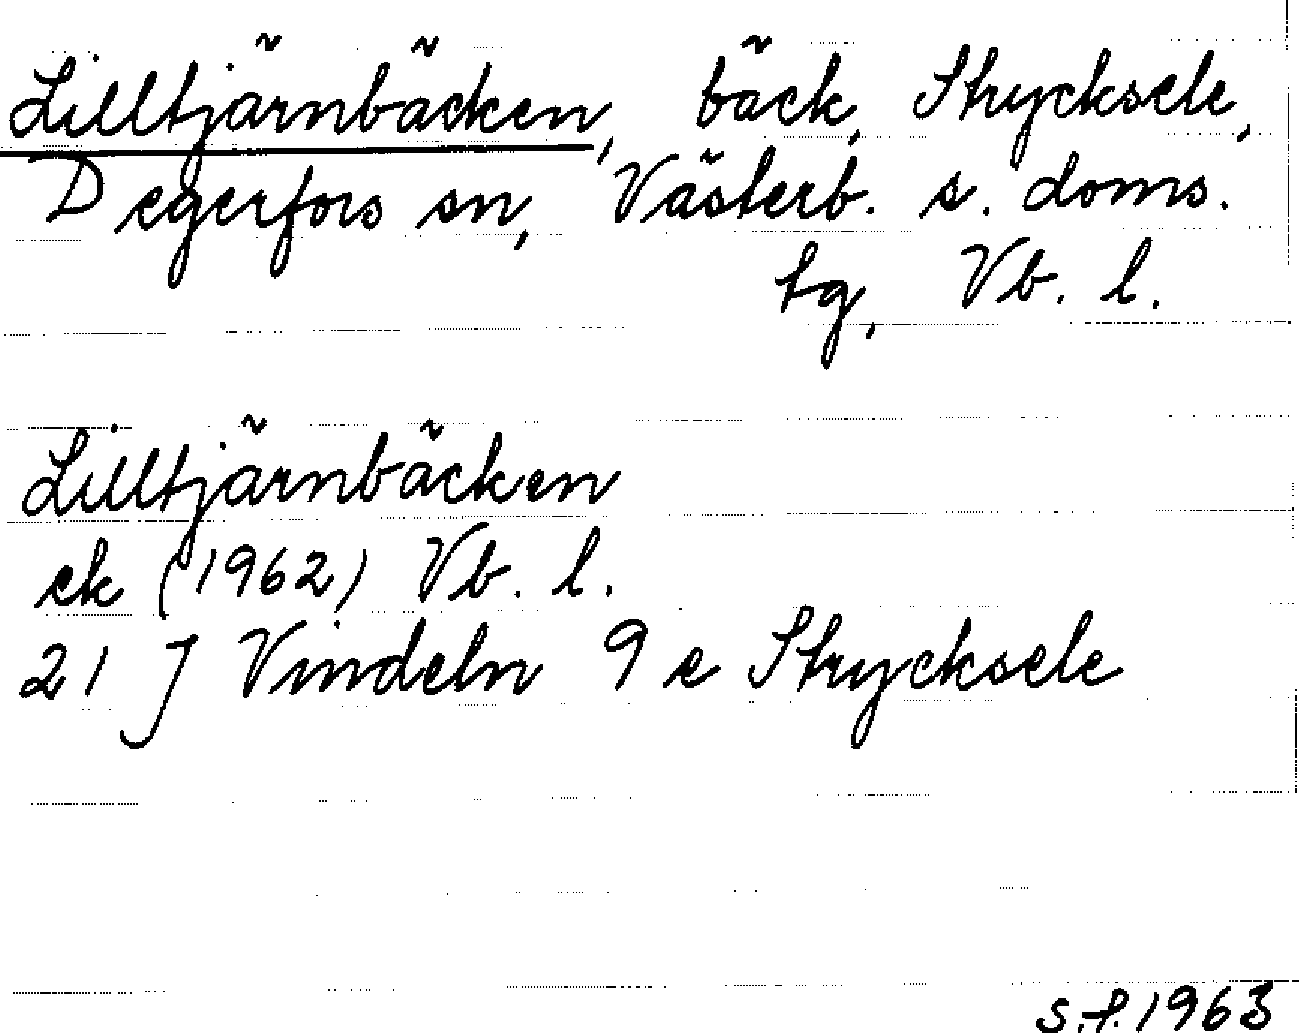 Lilltjärnbäcken, bäck, Strycksele,
Degerfors sn, Västerb. s. doms.
tg, Vb. l.
Lilltjärnbäcken
ek (1962) Vb. l.
21 J Vindeln 9 e Strycksele
s.f. 1963